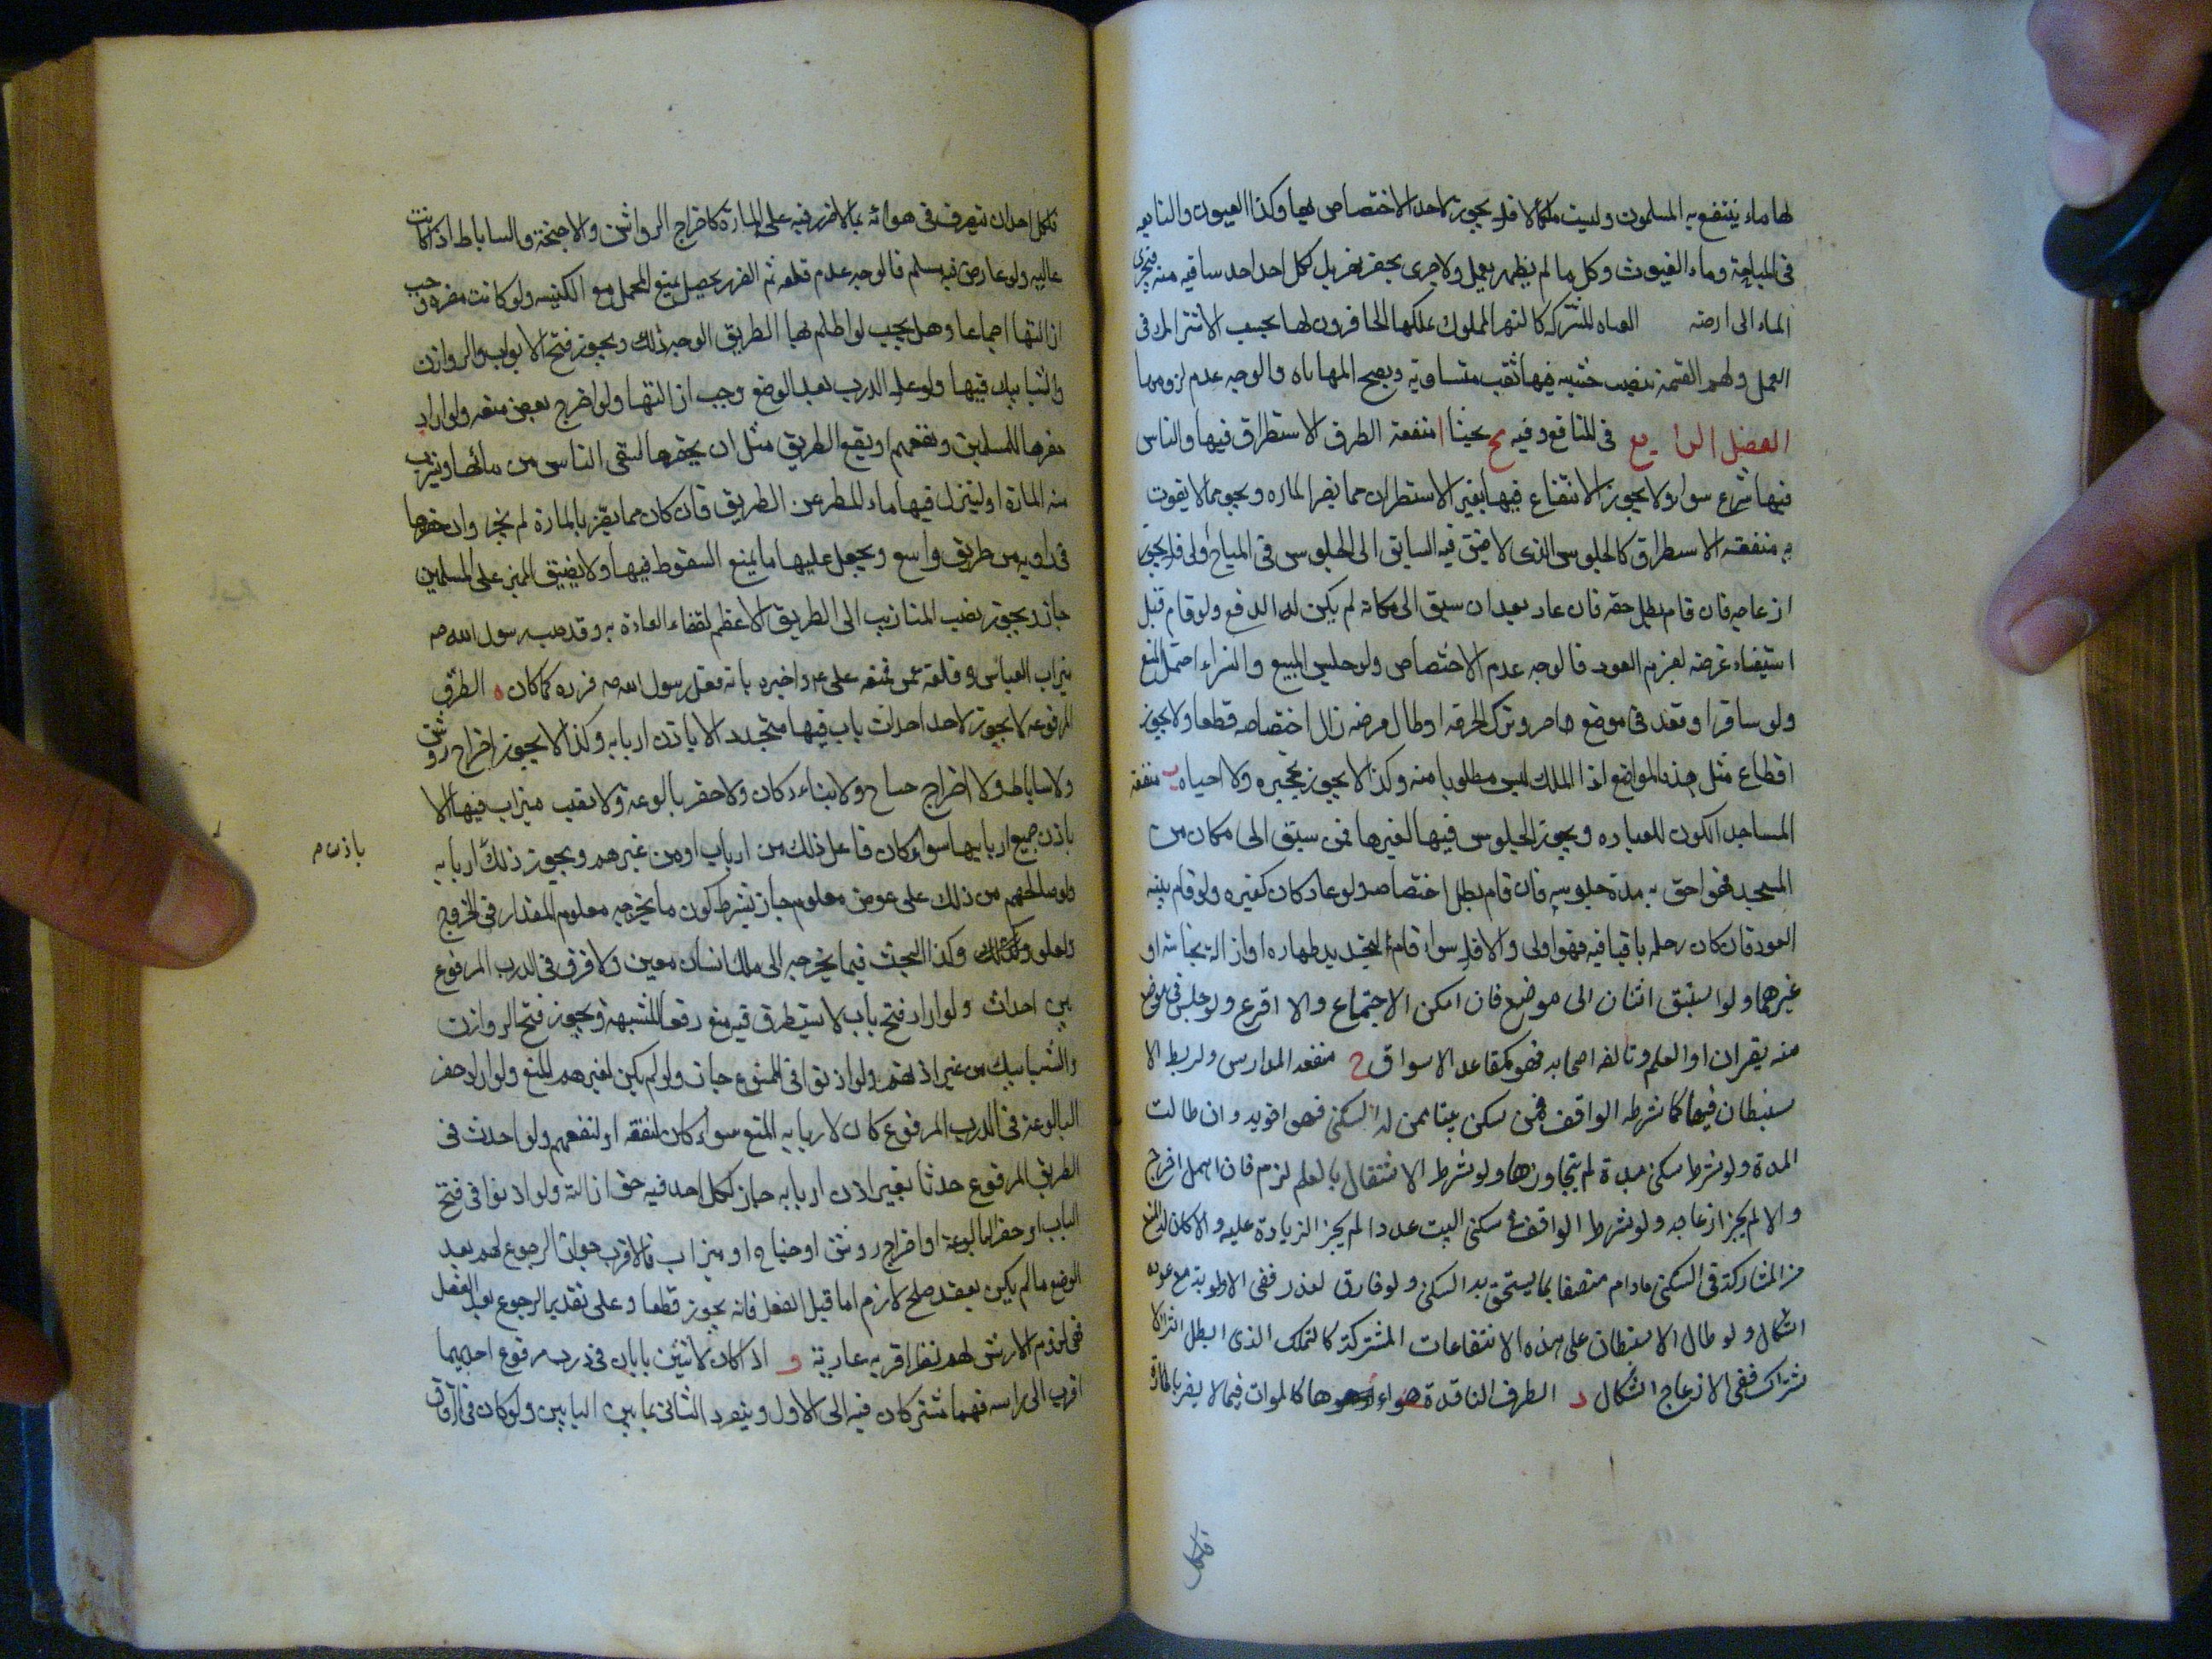 لها ماء ينتفع به المسلمون وليست ملكا لا فلا يجوز لاحد الاختصاص بها وكذا العيون والنابعه
فى المباحة وماء الغيوث وكل ما لم يظهر بعمل ولاجرى بحفر نهر بل لكل احد احد ساقيه منه فيجرى
الماء الى ارضه المياه المشتركه كالنهر المملوك يملكها الحافرون لها بحسب الاشتراك فى
العمل ولهم القسمة بنصب خشبه فيها ثقب متساوية ويصح المهاياه والوجه عدم لزومها
الفصل الرابع فى المنافع وفيه يح بحثا ا منفعة الطرق الاستطراق فيها والناس
فيها شرع سوا ولا يجوز الانتفاع فيها بغير الاستطراق مما يضر الماره ويجوز مما لا يفوت
به منفعة الاستطراق كالجلوس الذى لا ضيق فيه السابق الى الجلوس فى المباح اولى فلا يجوز
ازعاجه فان قام بطل حقه فان عاد بعد ان سبق الى مكانه لم يكن له الدفع ولو قام قبل
استيفاء غرضه لعزم العود فالوجه عدم الاختصاص ولو جلس للبيع والشراء احتمل المنع
ولو سافر او قعد فى موضع اخر وترك الحرفه او طال مرضه زال اختصاصه قطعا ولا يجوز
اقطاع مثل هذه المواضع اذ الملك ليس مطلوبا منه وكذا لا يجوز تحجيره ولا احياه ب منفعة
المساجد الكون للعباده ويجوز الجلوس فيها لغيرها فمن سبق الى مكان من
المسجد فهو احق به مدة جلوسه فان قام بطل اختصاصه ولو عاد كان كغيره ولو قام بنيه
العود فان كان رحله باقيا فيه فهو اولى والا فلا سواء قام لتجديد طهاره او ازالة نجاسة او
غيرهما ولو استبق اثنان الى موضع فان امكن الاجتماع والا اقرع ولو جلس فى موضع
منه يقران او العلم وتالفه اصحابه فهو كمقاعد الاسواق ج منفعه المدارس والربط الا
ستيطان فيها كما شرطه الواقف فمن سكن بيتا ممن له السكنى فهو احق به وان طالت
المدة ولو شرط سكنى مدة لم يتجاوزها ولو شرط الاشتغال بالعلم لزم فان اهمل اخرج
والا لم يجز ازعاجه ولو شرط الواقف فى سكنى البيت عددا لم يجز الزيادة عليه والا كان له المنع
من المشاركة فى السكنى مادام متصفا بما يستحق به السكنى ولو فارق لعذر ففى الاولوية مع عوده
اشكال ولو طال الاستيطان على هذه الانتفاعات المشتركة كالتملك الذى ابطل اثر الا
شتراك ففى الازعاج اشكال د الطرق النافذة هواءها كالموات فيما لا يضر بالمارة
فلكل
فلكل احد ان يتصرف فى هوائه بما لا ضرر فيه على المارة كاخراج الرواشن والاجنحة والساباط اذا كانت
عاليه ولو عارض فيه مسلم فالوجه عدم قلعه ثم الضرر يحصل بمنع المحمل مع الكنيسه ولو كانت مضرة وجب
ازالتها اجماعا وهل يجب لو اظلم بها الطريق الوجه ذلك ويجوز فتح الابواب والروازن
والشبابيك فيها ولو علا الدرب بعد الوضع وجب ازالتها ولو اخرج بعض منعه ولو اراد
حفرها للمسلمين ونفعهم او ينفع الطريق مثل ان يحفرها لتسقى الناس من مائها ويشرب
منه المارة او لينزل فيها ماء المطر عن الطريق فان كان مما يضر بالمارة لم يجز وان حفرها
فى زاويه من طريق واسع ويجعل عليها ما يمنع السقوط فيها ولا يضيق الممر على المسلمين
جاز ويجوز نصب الميازيب الى الطريق الاعظم لقضاء العادة به وقد نصب رسول الله ص
ميزاب العباس وقلعه عمر فمنعه على ع واخبره بانه فعل رسول الله ص فرده كما كان ه الطرق
المرفوعه لا يجوز لاحد احداث باب فيها متجدد الا باذن اربابه وكذا لا يجوز اخراج روشن
ولا ساباط ولا اخراج جناح ولا بناء دكان ولا حفر بالوعة ولا نصب ميزاب فيها الا
باذن جميع اربابها سواء كان فاعل ذلك من ارباب او من غيرهم ويجوز ذلك اربابه
باذن م
ولو صالحهم من ذلك على عوض معلوم جاز بشرط كون ما يخرجه معلوم المقدار فى الخروج
والعلو وكذا البحث فيما يخرجه الى ملك انسان معين ولا فرق فى الدرب المرفوع
بين احداث ولو اراد فتح باب لا يستطرق فيه منع دفعا للشبهة ويجوز فتح الروازن
والشبابيك من غير اذنهم ولو اذنوا فى الممنوع جاز ولو لم يكن لغيرهم المنع ولو اراد حفر
البالوعة فى الدرب المرفوع كان لاربابه المنع سواء كان لنفعه او لنفعهم ولو احدث فى
الطريق المرفوع حدثا بغير اذن اربابه جاز لكل احد فيه حق ازالته ولو اذنوا فى فتح
الباب او حفر البالوعة او اخراج روشن او جناح او ميزاب فالاقرب جواز الرجوع لهم بعد
الوضع ما لم يكن بعقد صلح لازم اما قبل الفعل فانه يجوز قطعا وعلى تقدير الرجوع بعد الفعل
ففى لزوم الارش لهم نظر اقربه عارية و اذا كان لاثنين بابان فى درب مرفوع احدهما
اقرب الى راسه فهما مشتركان فيه الى الاول وينفرد الثانى بما بين البابين ولو كان فى زقاق